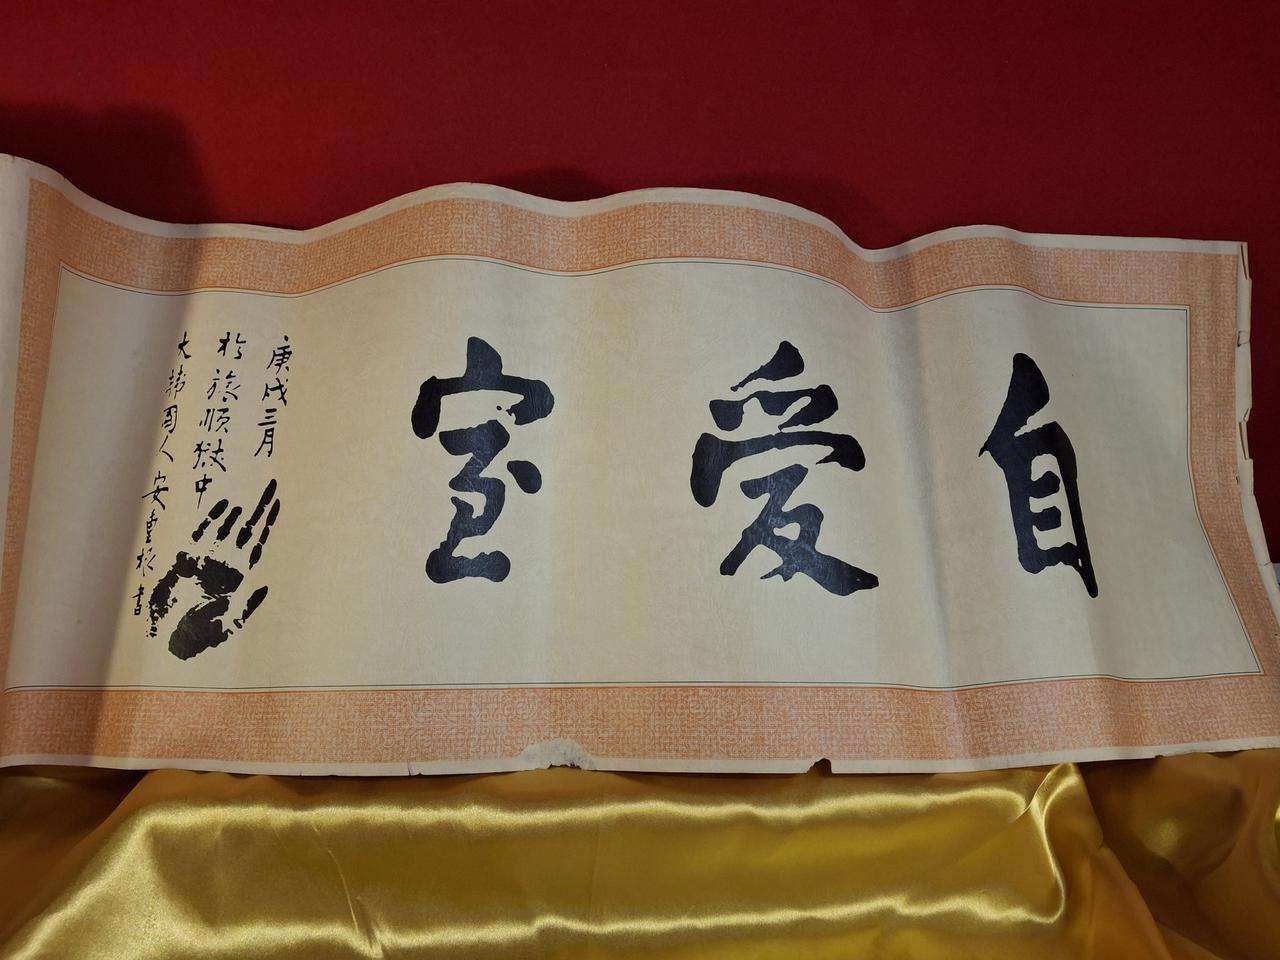 自愛室
庚戌三月
於旅順獄中
大韓國人 安重根 書